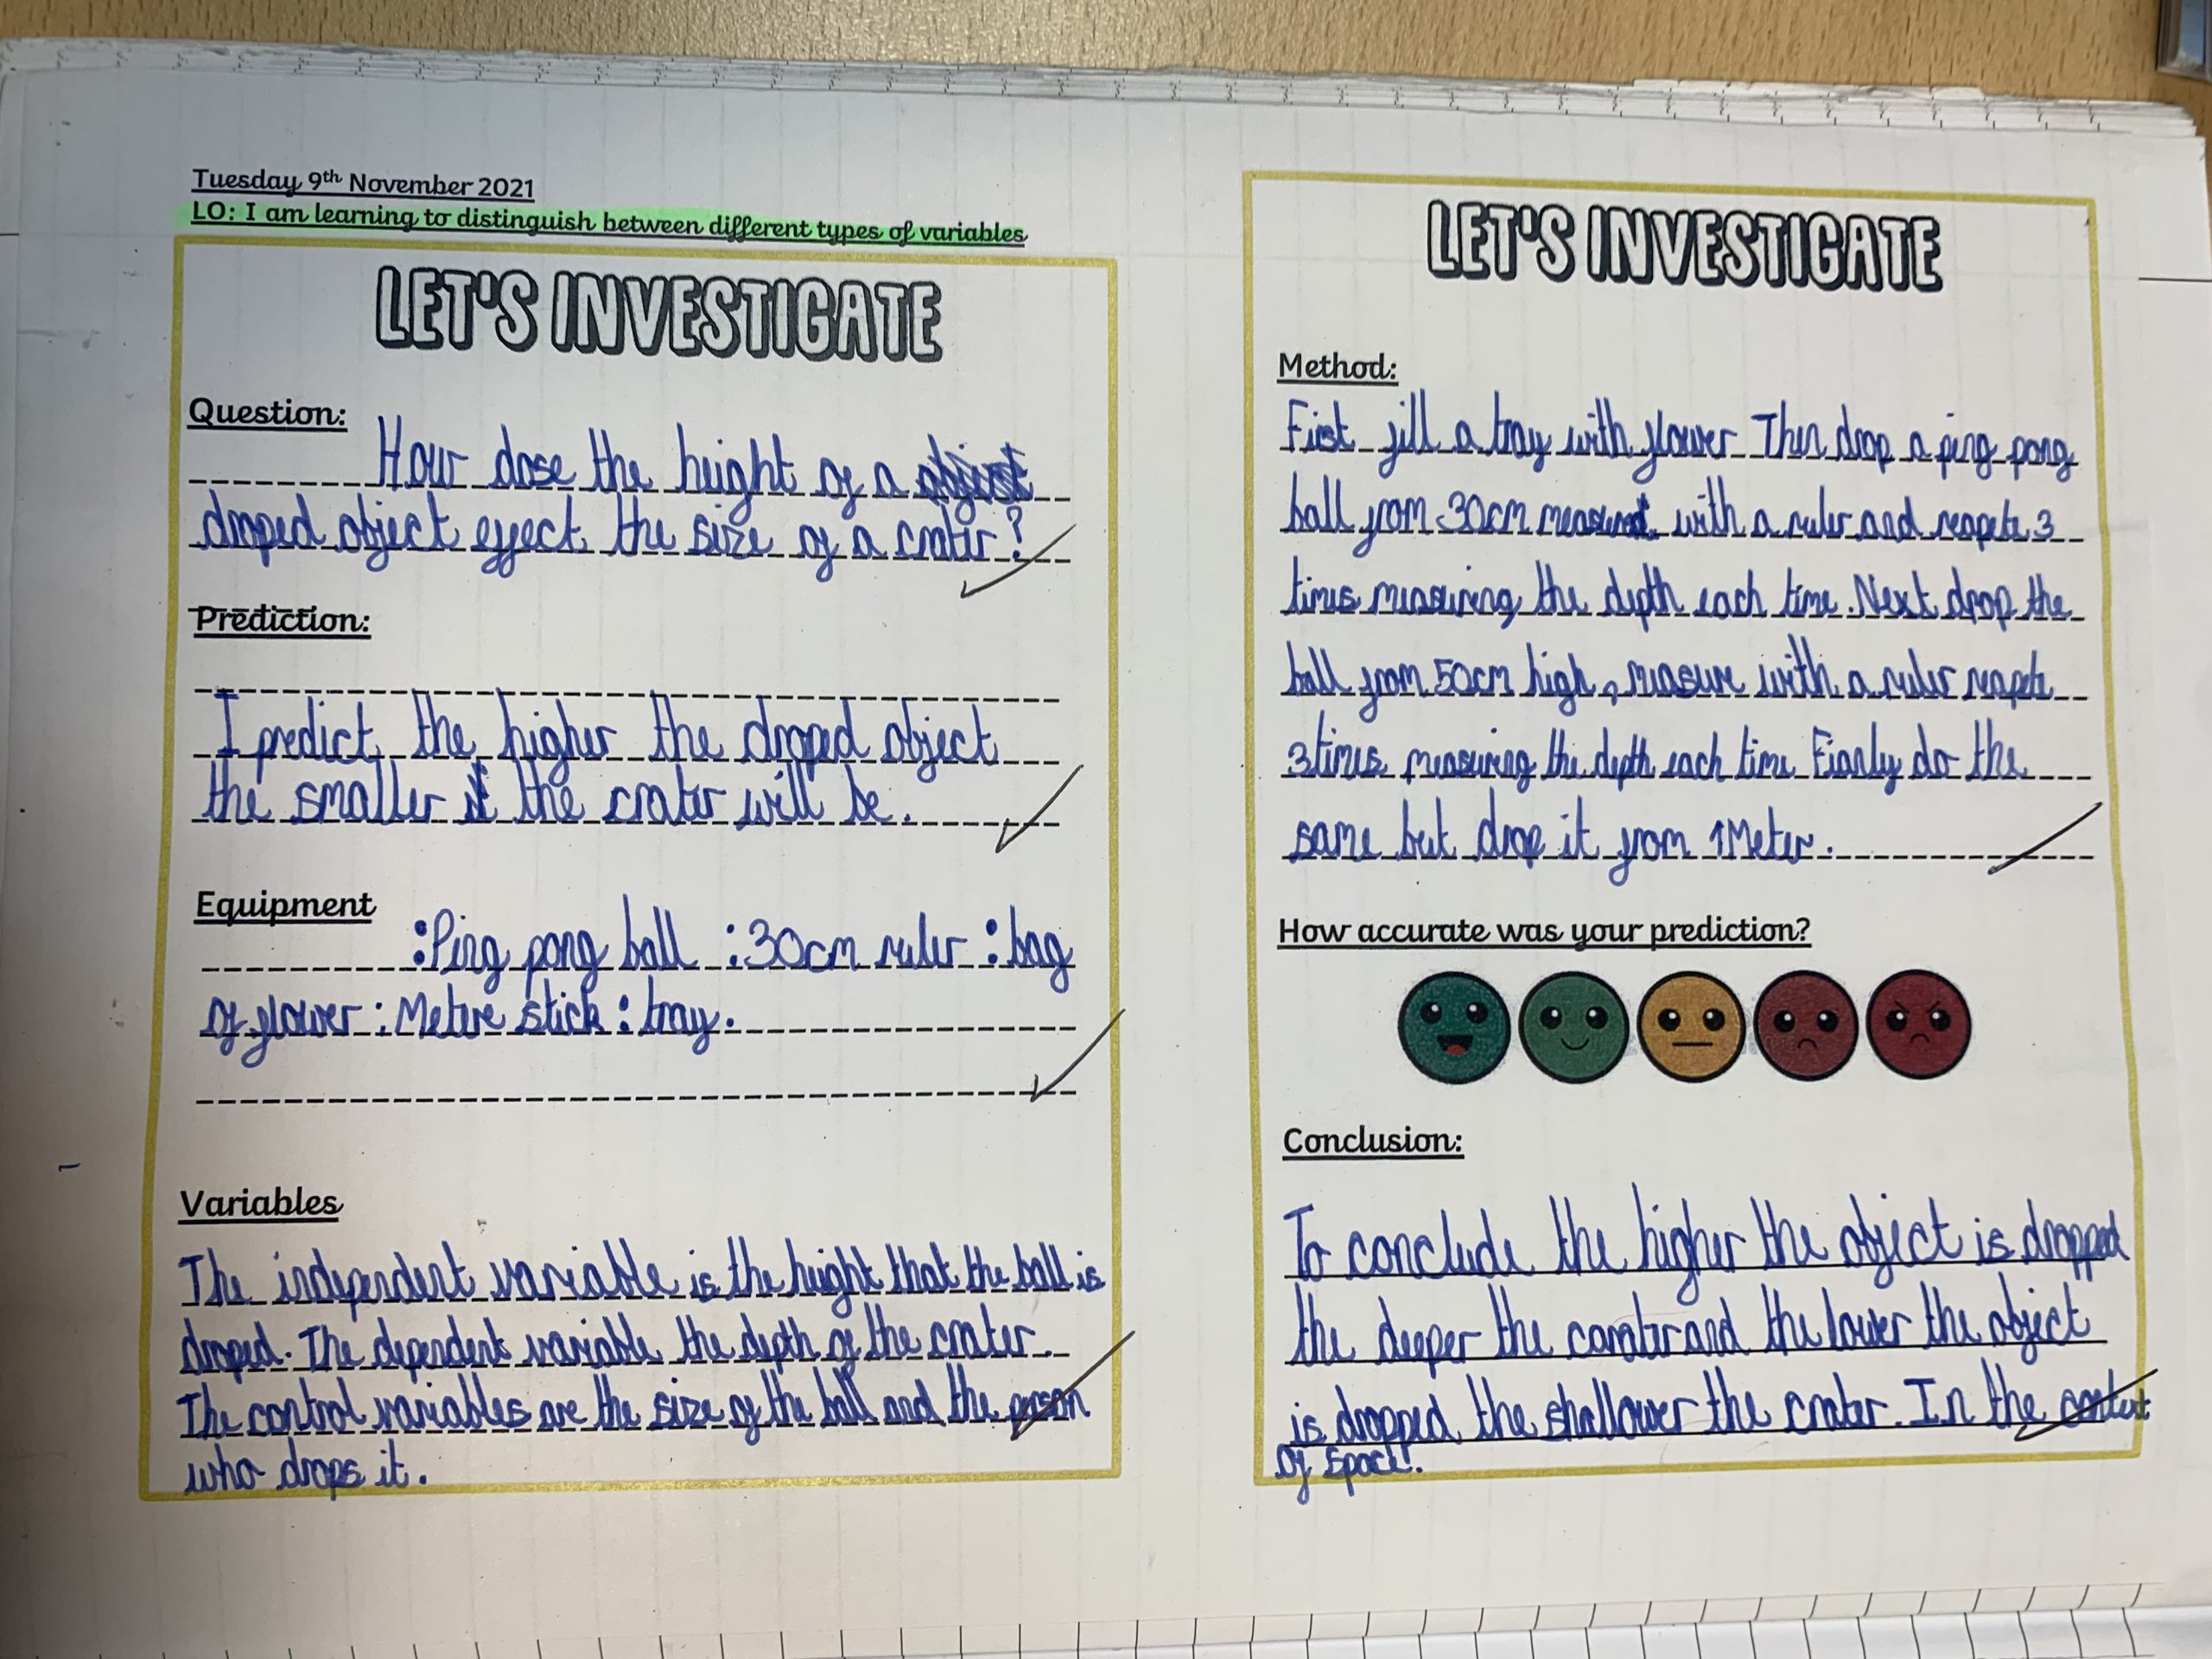 Tuesday 9th November 2021
LO: I am learning to distinguish between different types of variables
LET'S INVESTIGATE
Question:
How dose the height of a object
droped object effect the size of a crater?
Prediction:
I predict the higher the droped object
the smaller the crater will be.
Equipment
:Ping pong ball :30cm ruler :bag
of flower :Metre stick :tray.
Variables
The independent variable is the height that the ball is
droped. The dependent variable the depth of the crater.
The control variables are the size of the ball and the person
who drops it.
LET'S INVESTIGATE
Method:
First fill a tray with flower Then drop a ping pong
ball from 30cm measured with a ruler and reapete 3
times measuring the depth each time. Next drop the
ball from 50cm high, measure with a ruler reapete
3 times measuring the depth each time Fianly do the
same but drop it from 1Meter.
How accurate was your prediction?
Conclusion:
To conclude the higher the object is dropped
the deeper the carater and the lower the object
is dropped the shallower the crater. In the context
Of Space!.